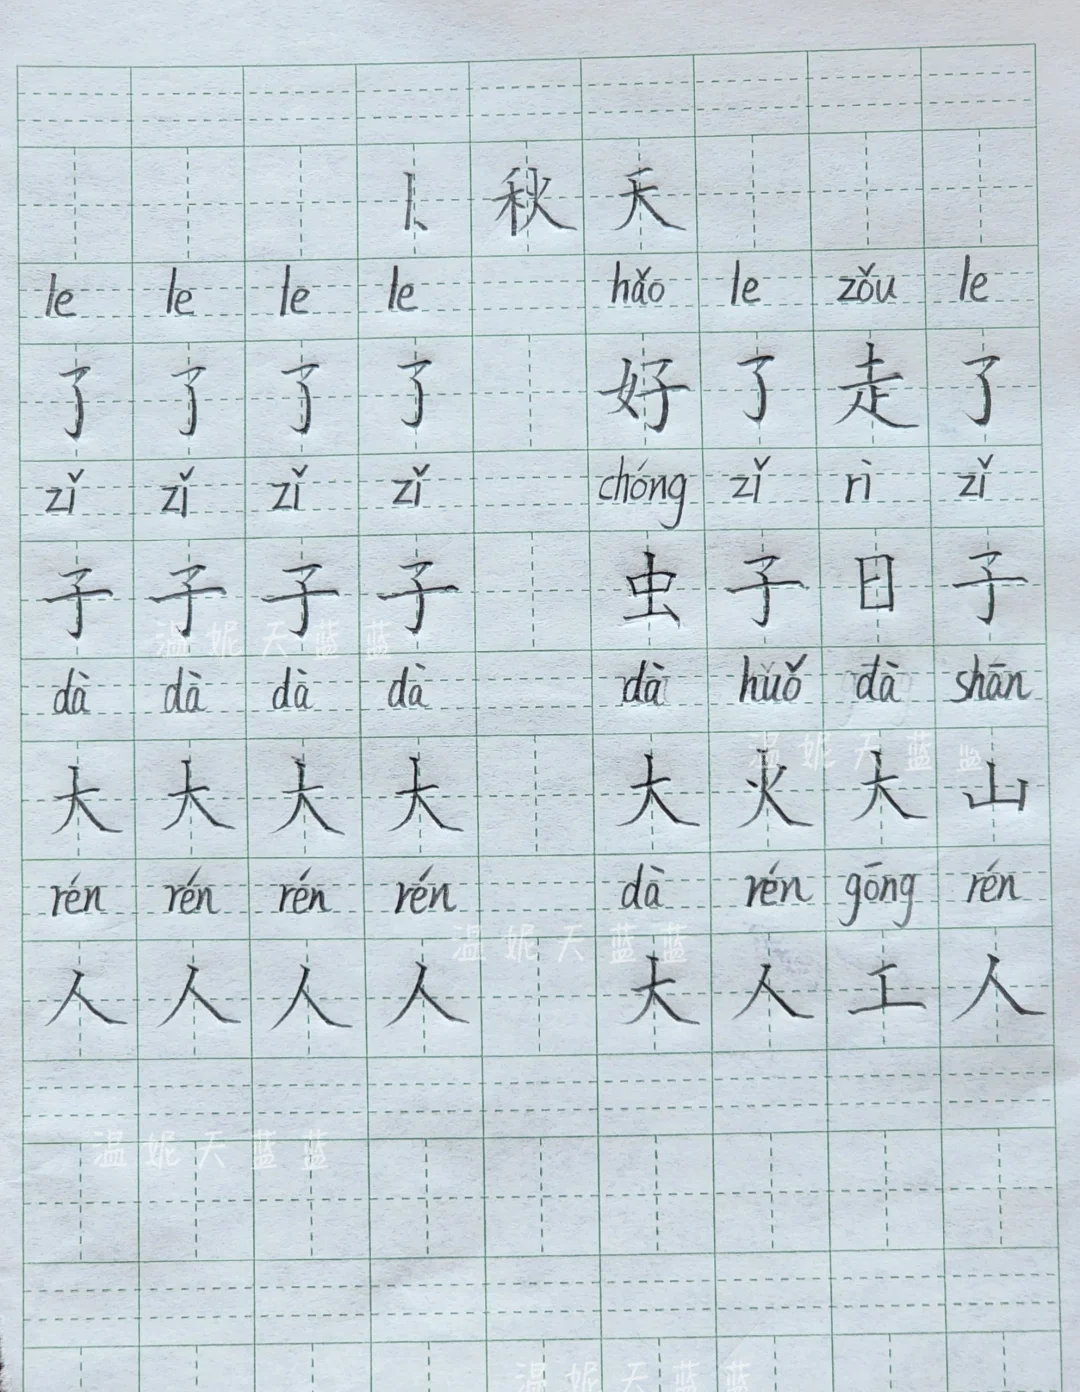 1、秋天
le le le le hǎo le zǒu le
了 了 了 了 好 了 走 了
zǐ zǐ zǐ zǐ chóng zǐ rì zǐ
子 子 子 子 虫 子 日 子
dà dà dà dà dà huǒ dà shān
大 大 大 大 大 火 大 山
rén rén rén rén dà rén gōng rén
人 人 人 人 大 人 工 人
温妮天蓝蓝
温妮天蓝蓝
温妮天蓝蓝
温妮天蓝蓝
温妮天蓝蓝